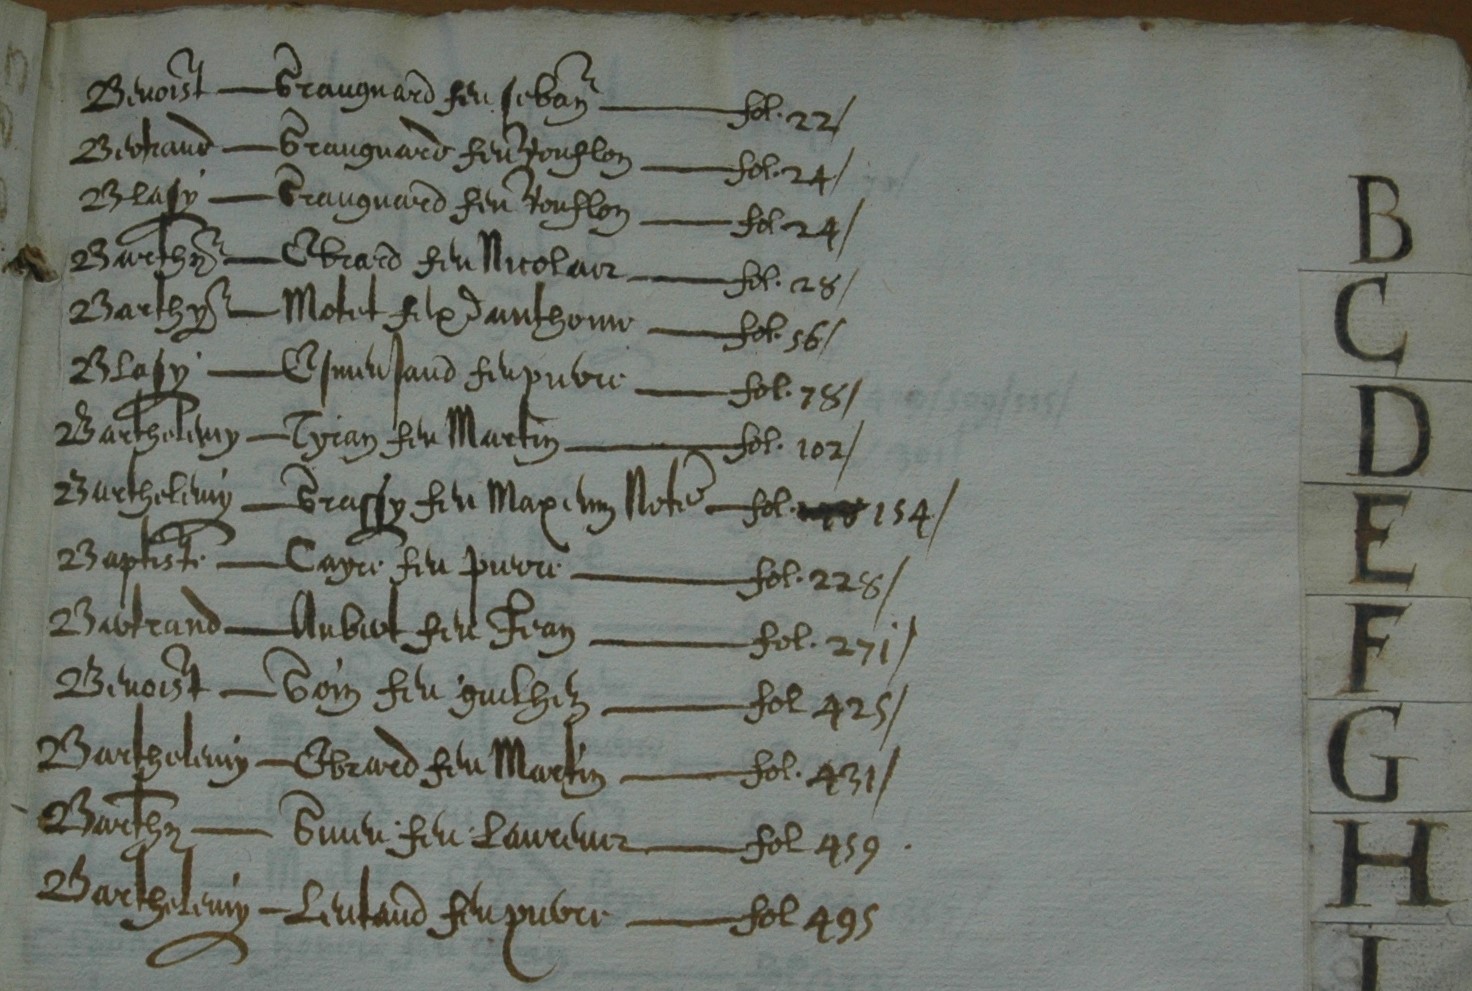 Benoist — Grauguard feu Jeban — fol. 22/
Bertrand — Grauguard feu Rouflon — fol. 24/
Blasy — Grauguard feu Rouflon — fol. 24/
Barthy — Ebrard feu Nicolau — fol. 28/
Barthy — Motet feu danthoine — fol. 56/
Blasy — feu pierre — fol. 78/
Barthelemy — Tyran feu Martin — fol. 102/
Barthelemy — Grassy feu Maximin Note — fol. 154/
Baptiste — Cayre feu pierre — fol. 228/
Bertrand — Aubert feu Jean — fol. 271/
Benoist — Goin feu guilhen — fol 425/
Barthelemy — Ebrard feu Martin — fol. 431/
Barthy — feu Laurens — fol 459 .
Barthelemy — Leutaud feu pierre — fol 495
B
C
D
E
F
G
H
I